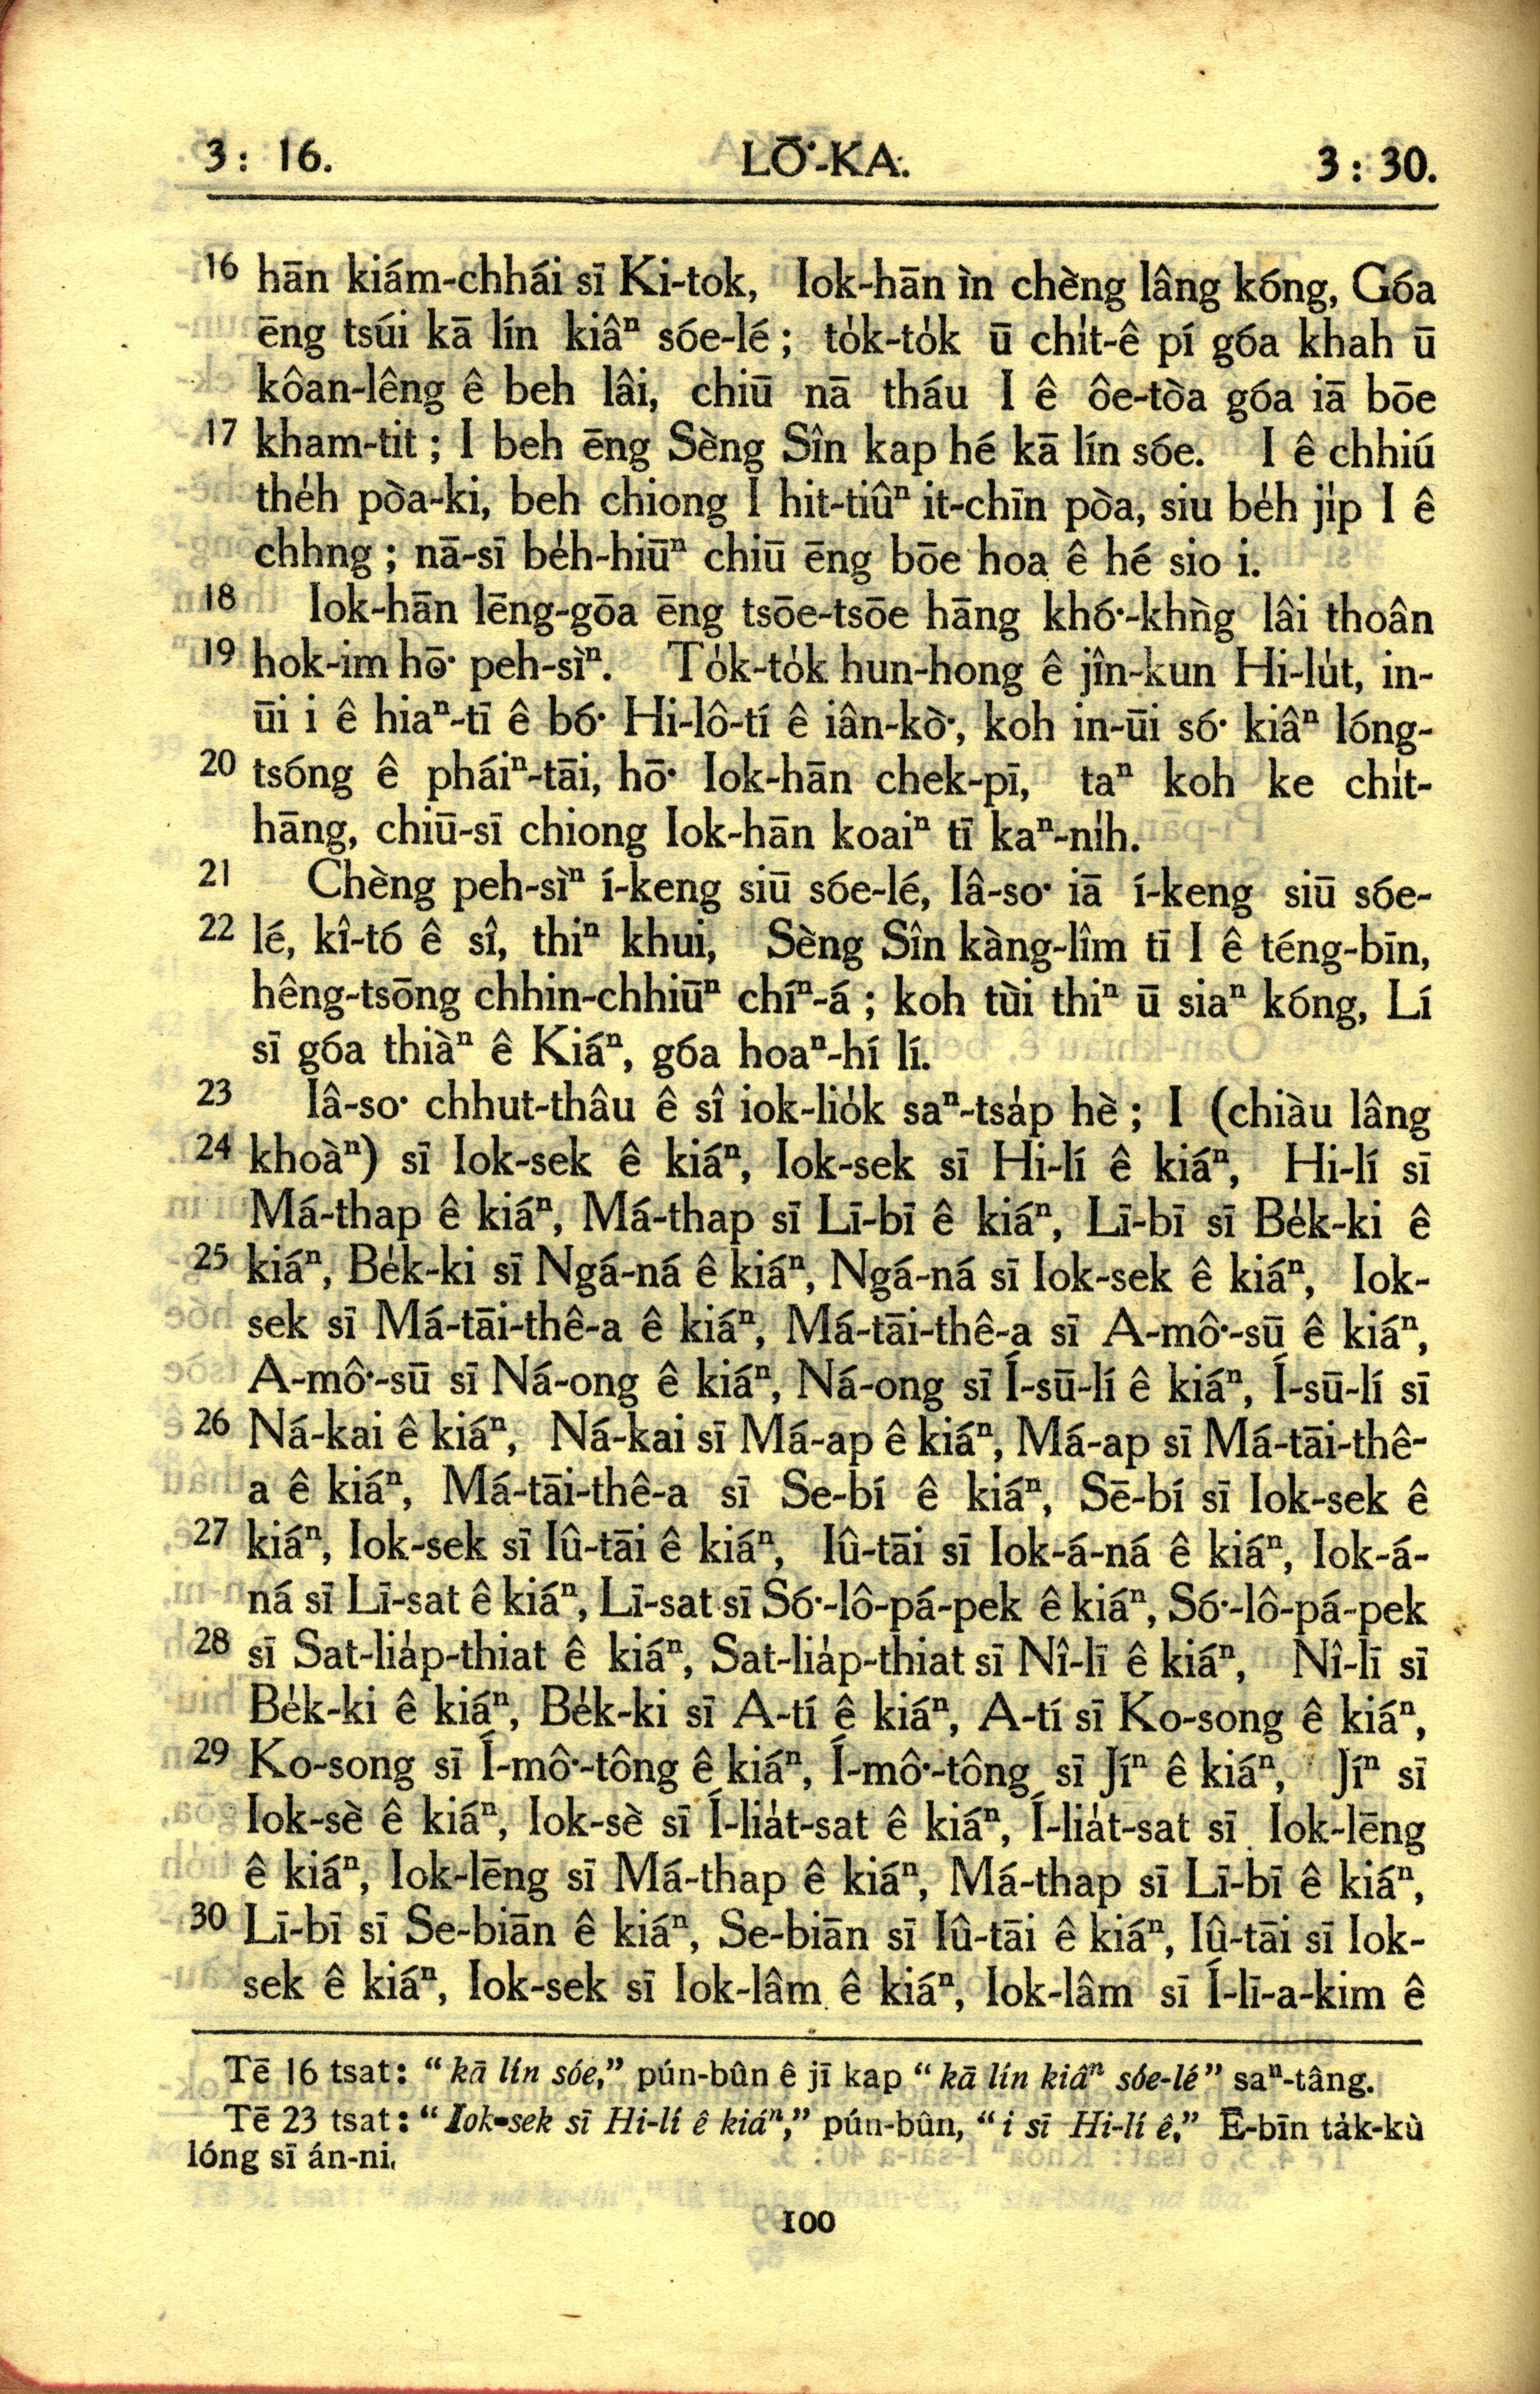 3: 16. LŌ͘-KA. 3: 30.
16 hān kiám-chhái sī Ki-tok, Iok-hān ìn chèng lâng kóng, Góa
ēng tsúi kā lín kiâⁿ sóe-lé; to̍k-to̍k ū chi̍t-ê pí góa khah ū
kôan-lêng ê beh lâi, chiū nā tháu I ê ôe-tòa góa iā bōe
17 kham-tit; I beh ēng Sèng Sîn kap hé kā lín sóe. I ê chhiú
the̍h pòa-ki, beh chiong I hit-tiûⁿ it-chīn pòa, siu be̍h ji̍p I ê
chhng; nā-sī be̍h-hiūⁿ chiū ēng bōe hoa ê hé sio i.
18 Iok-hān lēng-gōa ēng tsōe-tsōe hāng khó͘-khǹg lâi thoân
19 hok-im hō͘ peh-sìⁿ. To̍k-to̍k hun-hong ê jîn-kun Hi-lu̍t, in-
ūi i ê hiaⁿ-tī ê bó͘ Hi-lô-tí ê iân-kò͘, koh in-ūi só͘ kiâⁿ lóng-
20 tsóng ê pháiⁿ-tāi, hō͘ Iok-hān chek-pī, taⁿ koh ke chi̍t-
hāng, chiū-sī chiong Iok-hān koaiⁿ tī kaⁿ-ni̍h.
21 Chèng peh-sìⁿ í-keng siū sóe-lé, Iâ-so͘ iā í-keng siū sóe-
22 lé, kî-tó ê sî, thiⁿ khui, Sèng Sîn kàng-lîm tī I ê téng-bīn,
hêng-tsōng chhin-chhiūⁿ chíⁿ-á; koh tùi thiⁿ ū siaⁿ kóng, Lí
sī góa thiàⁿ ê Kiáⁿ, góa hoaⁿ-hí lí.
23 Iâ-so͘ chhut-thâu ê sî iok-lio̍k saⁿ-tsa̍p hè; I (chiàu lâng
24 khoàⁿ) sī Iok-sek ê kiáⁿ, Iok-sek sī Hi-lí ê kiáⁿ, Hi-lí sī
Má-thap ê kiáⁿ, Má-thap sī Lī-bī ê kiáⁿ, Lī-bī sī Be̍k-ki ê
25 kiáⁿ, Be̍k-ki sī Ngá-ná ê kiáⁿ, Ngá-ná sī Iok-sek ê kiáⁿ, Iok-
sek sī Má-tāi-thê-a ê kiáⁿ, Má-tāi-thê-a sī A-mô͘-sū ê kiáⁿ,
A-mô͘-sū sī Ná-ong ê kiáⁿ, Ná-ong sī Í-sū-lí ê kiáⁿ, Í-sū-lí sī
26 Ná-kai ê kiáⁿ, Ná-kai sī Má-ap ê kiáⁿ, Má-ap sī Má-tāi-thê-
a ê kiáⁿ, Má-tāi-thê-a sī Se-bí ê kiáⁿ, Sē-bí sī Iok-sek ê
27 kiáⁿ, Iok-sek sī Iû-tāi ê kiáⁿ, Iû-tāi sī Iok-á-ná ê kiáⁿ, Iok-á-
ná sī Lī-sat ê kiáⁿ, Lī-sat sī Só͘-lô-pá-pek ê kiáⁿ, Só͘-lô-pá-pek
28 sī Sat-lia̍p-thiat ê kiáⁿ, Sat-lia̍p-thiat sī Nî-lī ê kiáⁿ, Nî-lī sī
Be̍k-ki ê kiáⁿ, Be̍k-ki sī A-tí ê kiáⁿ, A-tí sī Ko-song ê kiáⁿ,
29 Ko-song sī Í-mô͘-tông ê kiáⁿ, Í-mô͘-tông sī Jíⁿ ê kiáⁿ, Jíⁿ sī
Iok-sè ê kiáⁿ, Iok-sè sī Í-lia̍t-sat ê kiáⁿ, Í-lia̍t-sat sī Iok-lēng
ê kiáⁿ, Iok-lēng sī Má-thap ê kiáⁿ, Má-thap sī Lī-bī ê kiáⁿ,
30 Lī-bī sī Se-biān ê kiáⁿ, Se-biān sī Iû-tāi ê kiáⁿ, Iû-tāi sī Iok-
sek ê kiáⁿ, Iok-sek sī Iok-lâm ê kiáⁿ, Iok-lâm sī Í-lī-a-kim ê
Tē 16 tsat: “kā lín sóe,” pún-bûn ê jī kap “kā lín kiâⁿ sóe-lé” saⁿ-tâng.
Tē 23 tsat: “Iok-sek sī Hi-lí ê kiáⁿ,” pún-bûn, “i sī Hi-lí ê.” Ē-bīn ta̍k-kù
lóng sī án-ni.
100